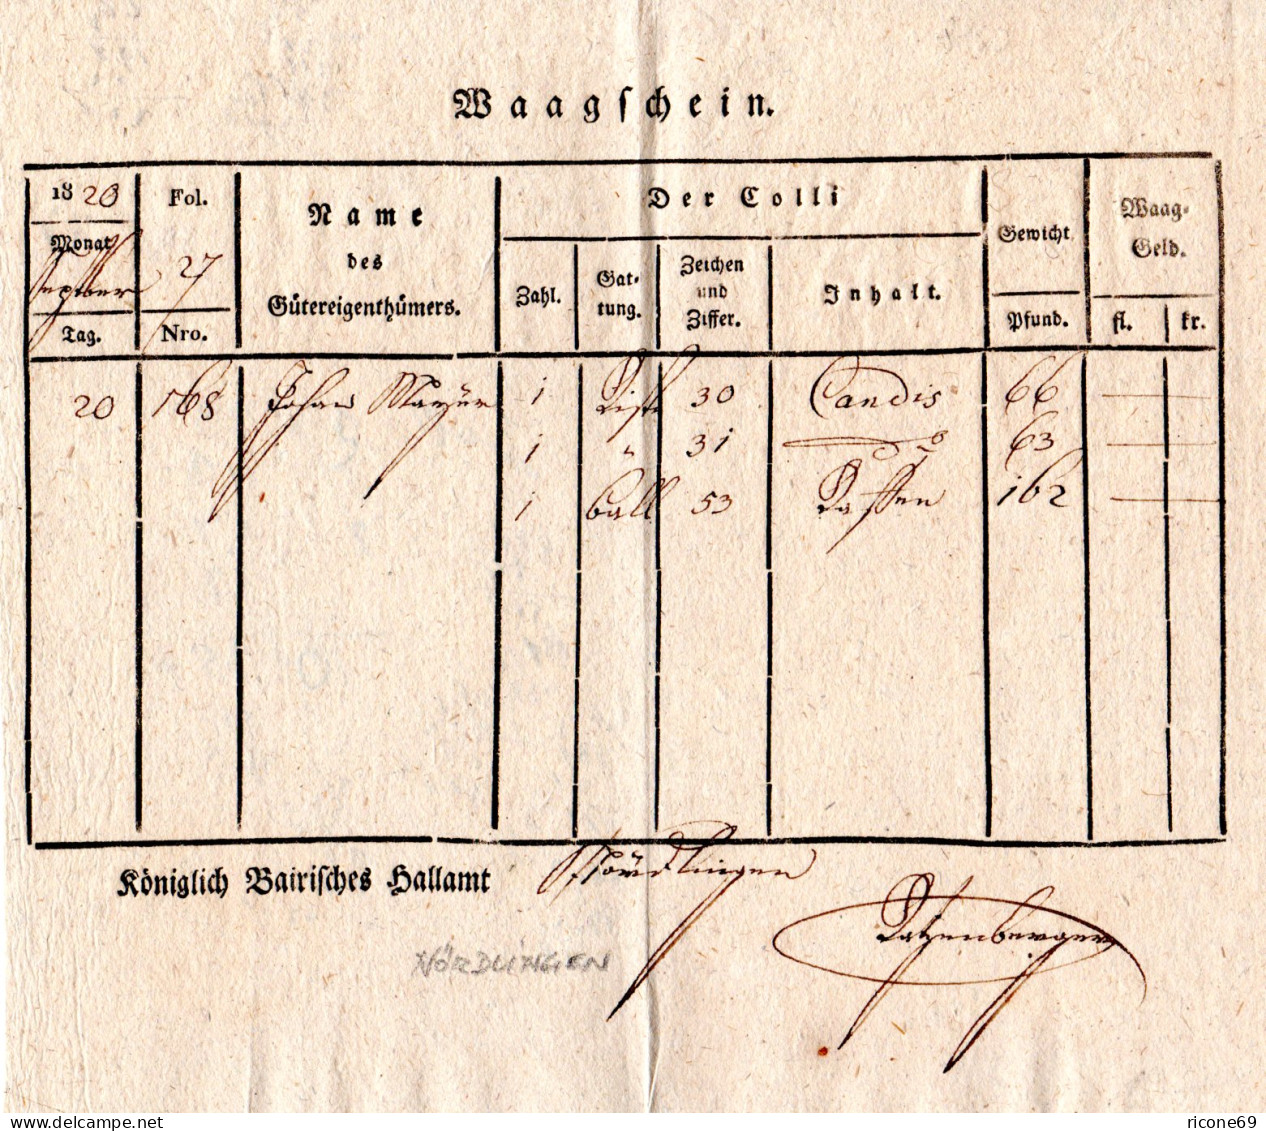 Waagschein.
1820 Fol. Name des Gütereigenthümers. Der Colli Gewicht Waag-Geld.
Monat September 27 Zahl. Gattung. Zeichen und Ziffer. Inhalt.
Tag. Nro. Pfund. fl. kr.
20 768 Johan Mayer 1 Kiste 30 Candis 66 —
1 " 31 do 63 —
1 ball 53 Kaffeu 162 —
Königlich Bairisches Hallamt Nördlingen
Katzenberger
NÖRDLINGEN
delcampe.net
ricone69